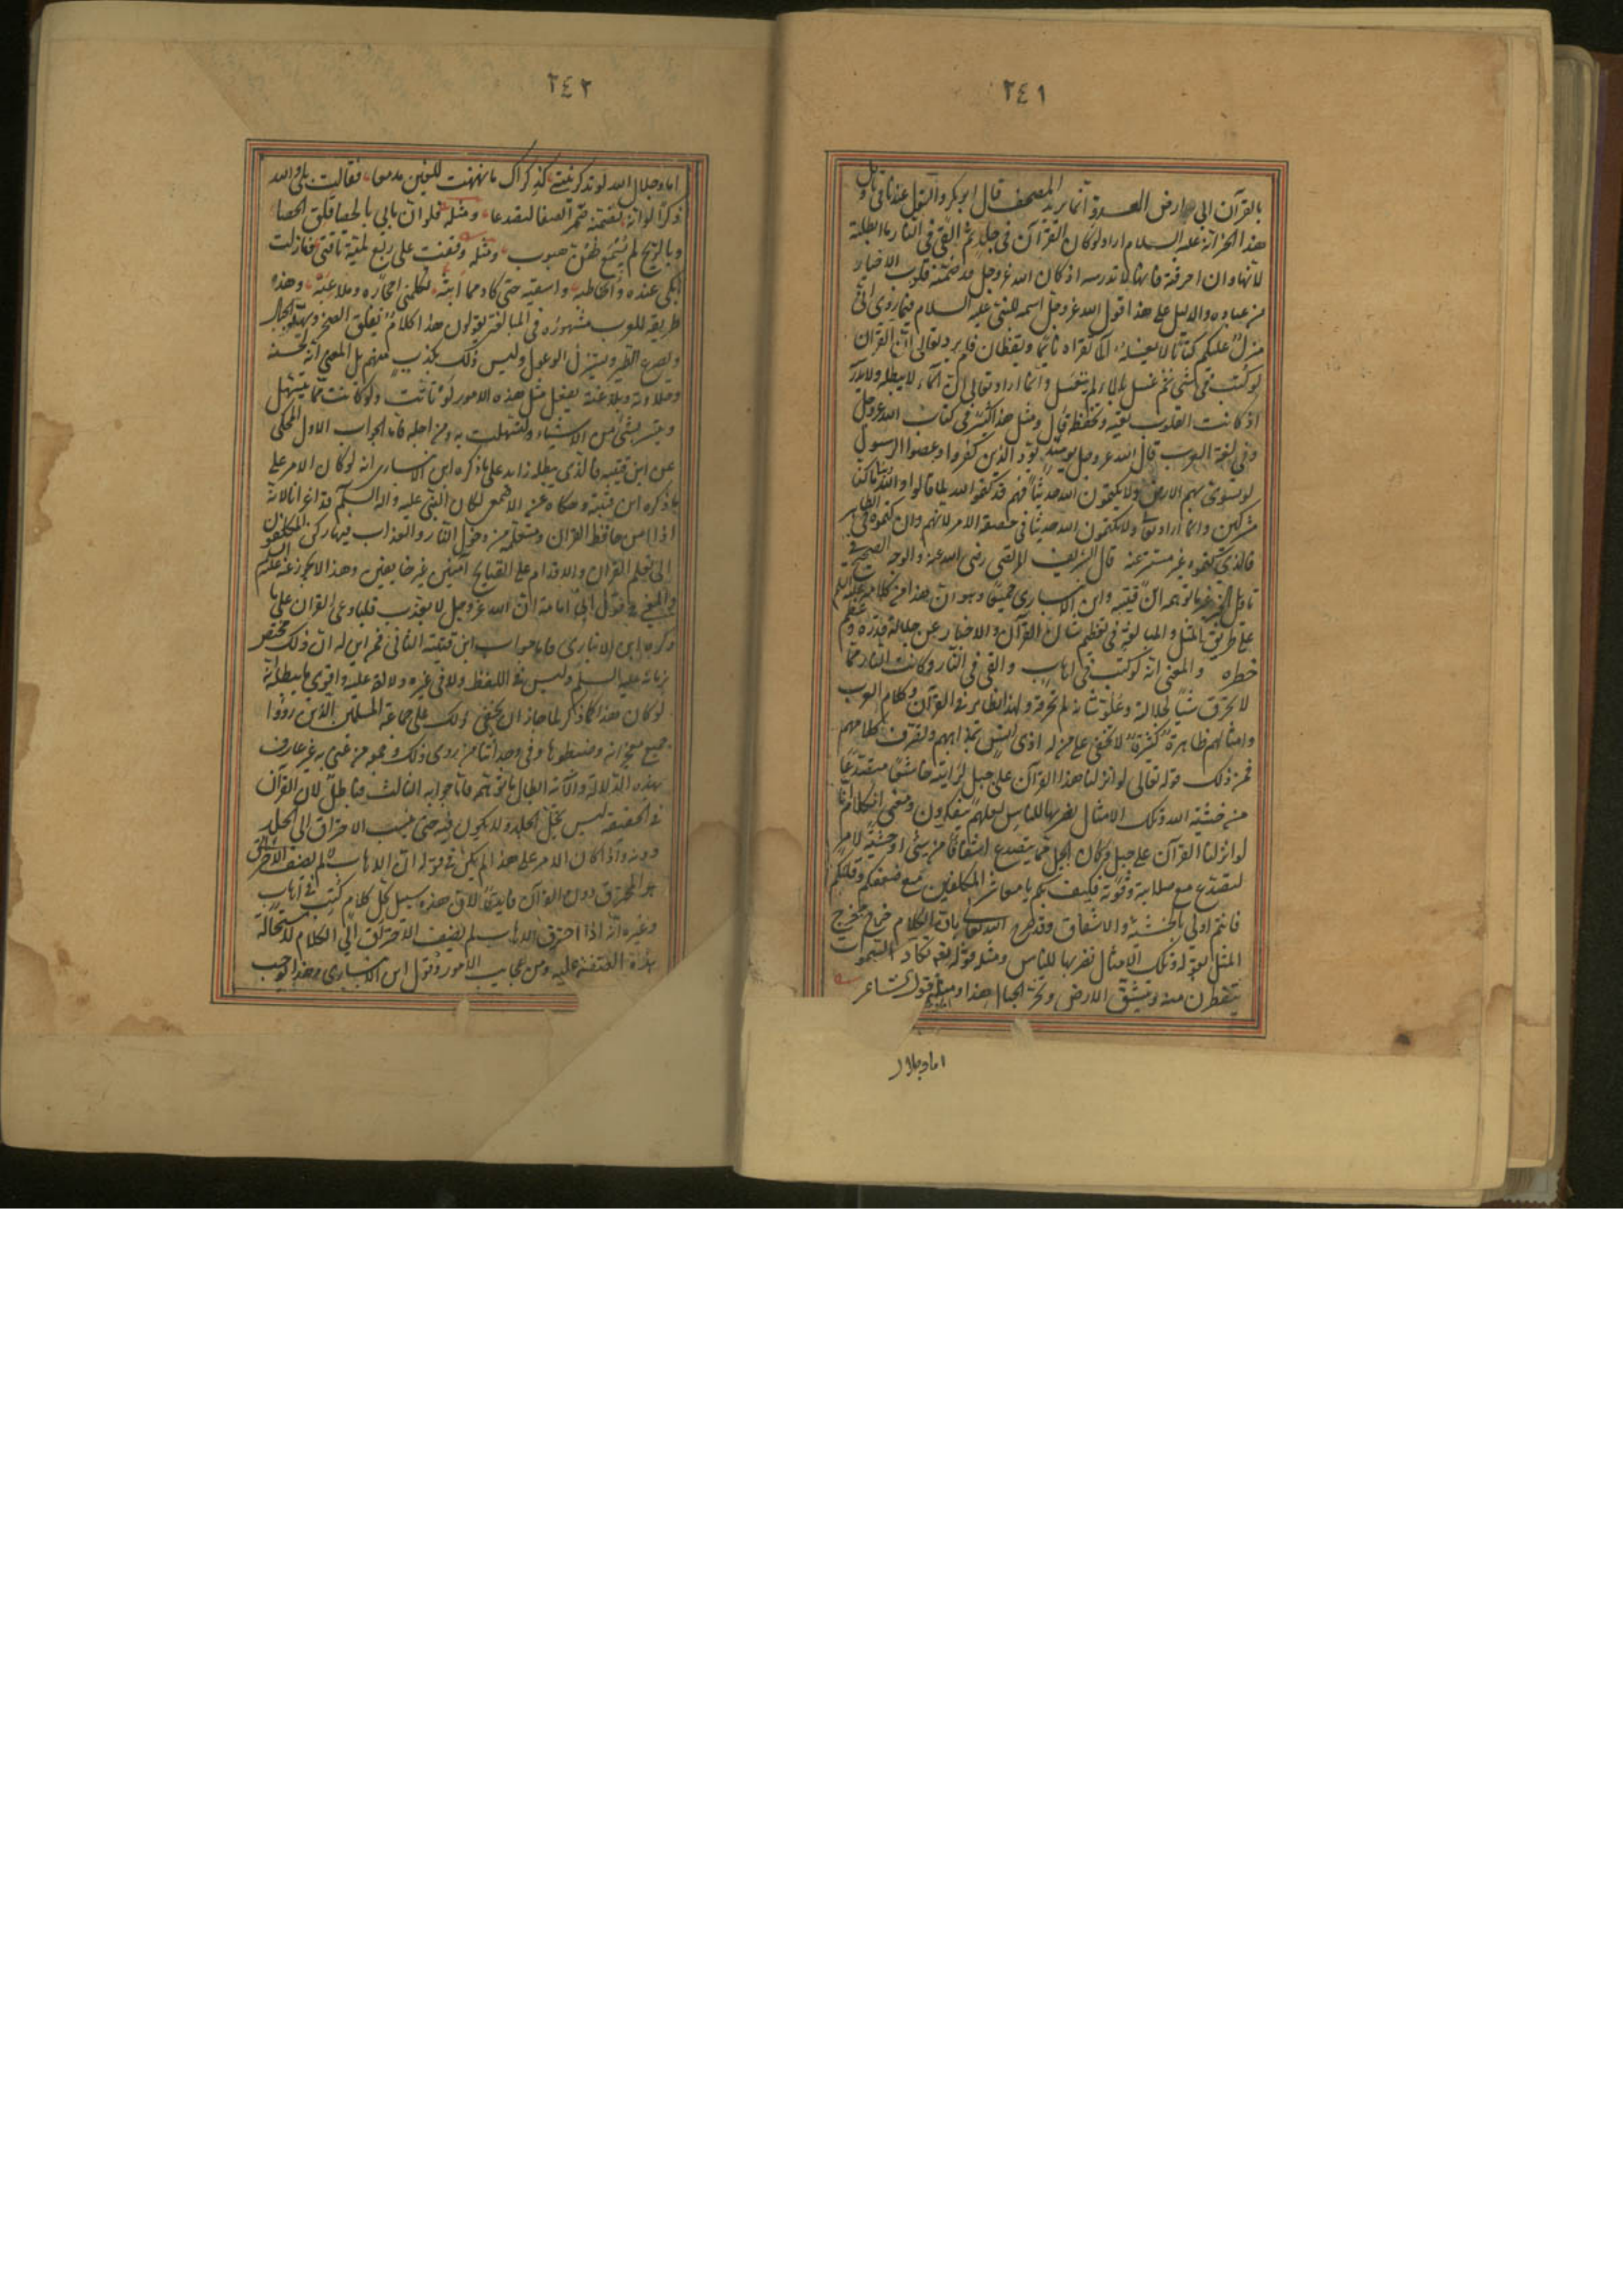 ٢٤١
بالقرآن الى ارض العدو وانما يريد المصحف قال ابو بكر والقول عندنا في تأويل
هذا الخبر انه عليه السلام اراد لو كان القرآن في جلد ثم القي في النار ما ابطلته
لانها وان احرقته فانها لا تدرسه اذ كان الله عز وجل قد ضمنه قلوب الاخيار
من عباده والدليل على هذا قول الله عز وجل اسمه للنبي عليه السلام فيما روي اني
منزل عليكم كتابا لا يغسله الماء تقرأه نائما ويقظان فلم يرد تعالى ان القرآن
لو كتب في شيء ثم غسل بالماء لم ينغسل وانما اراد تعالى ان الماء لا يبطله ولا يدرسه
اذ كانت القلوب تعيه وتحفظه قال ومثل هذا كثير في كتاب الله عز وجل
وفي لغة العرب قال الله عز وجل يومئذ يود الذين كفروا وعصوا الرسول
لو تسوى بهم الارض ولا يكتمون الله حديثا فهم قد كتموا الله لما قالوا والله ربنا ما كنا
مشركين وانما اراد تعالى ولا يكتمون الله حديثا في حقيقة الامر لانهم وان كتموه في الظاهر
فالذي كتموه غير مستتر عنه قال الشريف المرتضى رضي الله عنه والوجه الصحيح في
تأويل الخبر غير ما توهمه ابن قتيبة وابن الانباري جميعا وهو ان هذا من كلامه عليه السلم
على طريق المثل والمبالغة في تعظيم شأن القرآن والاخبار عن جلالة قدره وعظم
خطره والمعنى انه لو كتب في اهاب والقي في النار وكانت النار مما
لا تحرق شيئا لجلالته وعلو شأنه لم تحرقه ولهذا نظاير في القرآن وكلام العرب
وامثالهم ظاهرة كثيرة لا تخفى على من له ادنى انس بمذاهبهم وتصرف كلامهم
فمن ذلك قوله تعالى لو انزلنا هذا القرآن على جبل لرايته خاشعا متصدعا
من خشية الله وتلك الامثال نضربها للناس لعلهم يتفكرون ومعنى الكلام انا
لو انزلنا القرآن على جبل وكان الجبل مما يتصدع اشفاقا من شيء او خشية لامر
لتصدع مع صلابته وقوته فكيف بكم يا معاشر المكلفين مع ضعفكم وقلتكم
فانتم اولى بالخشية والاشفاق وقد صرح الله تعالى بان الكلام خرج مخرج
المثل بقوله وتلك الامثال نضربها للناس ومثله قوله تعالى تكاد السموات
يتفطرن منه وتنشق الارض وتخر الجبال هذا ومثله قول الشاعر
اما وجلال
٢٤٢
اما وجلال الله لو تذكرينني كذكراك ما نهنهت للعين مدمعا فقالت بلى والله
ذكرا لو انه تضمنه صم الصفا لتصدعا ومثله فلو ان ما بي بالحصا فلق الحصا
وبالريح لم يسمع لهن هبوب ومثله وقفت على ربع لمية ناقتي فما زلت
ابكي عنده واخاطبه واسقيه حتى كاد مما ابثه تكلمني احجاره وملاعبه وهذه
طريقة للعرب مشهورة في المبالغة يقولون هذا كلام يفلق الصخر ويهد الجبال
ويصرع الطير ويستنزل الوعول وليس ذلك بكذب منهم بل المعنى انه لحسنه
وحلاوته وبلاغته يفعل مثل هذه الامور لو تأتت ولو كانت مما يتسهل
ويتيسر لشيء من الاشياء لتسهلت به ومن اجله فاما الجواب الاول المحكي
عن ابن قتيبة فالذي يبطله زايد على ما ذكره ابن الانباري انه لو كان الامر على
ما ذكره ابن قتيبة وحكاه عن الاصمعي لكان النبي عليه واله السلم قد اغرانا لانه
اذا امن حافظ القرآن ومتعلمه من دخول النار والعذاب فيها ركن المكلفون
الى تعلم القرآن والاقدام على القبايح آمنين غير خايفين وهذا لا يجوز عنه عليه السلم
والمعنى في قول ابي امامة ان الله عز وجل لا يعذب قلبا وعى القرآن على ما
ذكره ابن الانباري فاما جواب ابن قتيبة الثاني فمن اين له ان ذلك مختص
بزمانه عليه السلم وليس في اللفظ ولا في غيره دلالة عليه واقوى ما يبطله انه
لو كان هذا كما ذكر لما جاز ان يخفى ذلك على جماعة المسلمين الذين رووا
جميع معجزاته وضبطوها وفي وجداننا من روى ذلك وجمعه من عني به غير عارف
بهذه الدلالة والآية ابطال ما توهمه فاما جوابه الثالث فباطل لان القرآن
في الحقيقة ليس يحل الجلد ولا يكون فيه حتى ينسب الاحتراق الى الجلد
دونه واذا كان الامر على هذا لم يكن في قوله ان الاهاب لم يضف الاحتراق
هو المحترق دون القرآن فايدة لان هذه سبيل كل كلام كتب في اهاب
وغيره انه اذا احترق الاهاب لم يضف الاحتراق الى الكلام لاستحالة
هذه الصفة عليه ومن عجايب الامور قول ابن الانباري وهذا يوجب